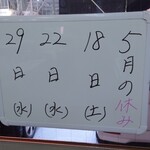 5月の休み
18日(土)
22日(水)
29日(水)